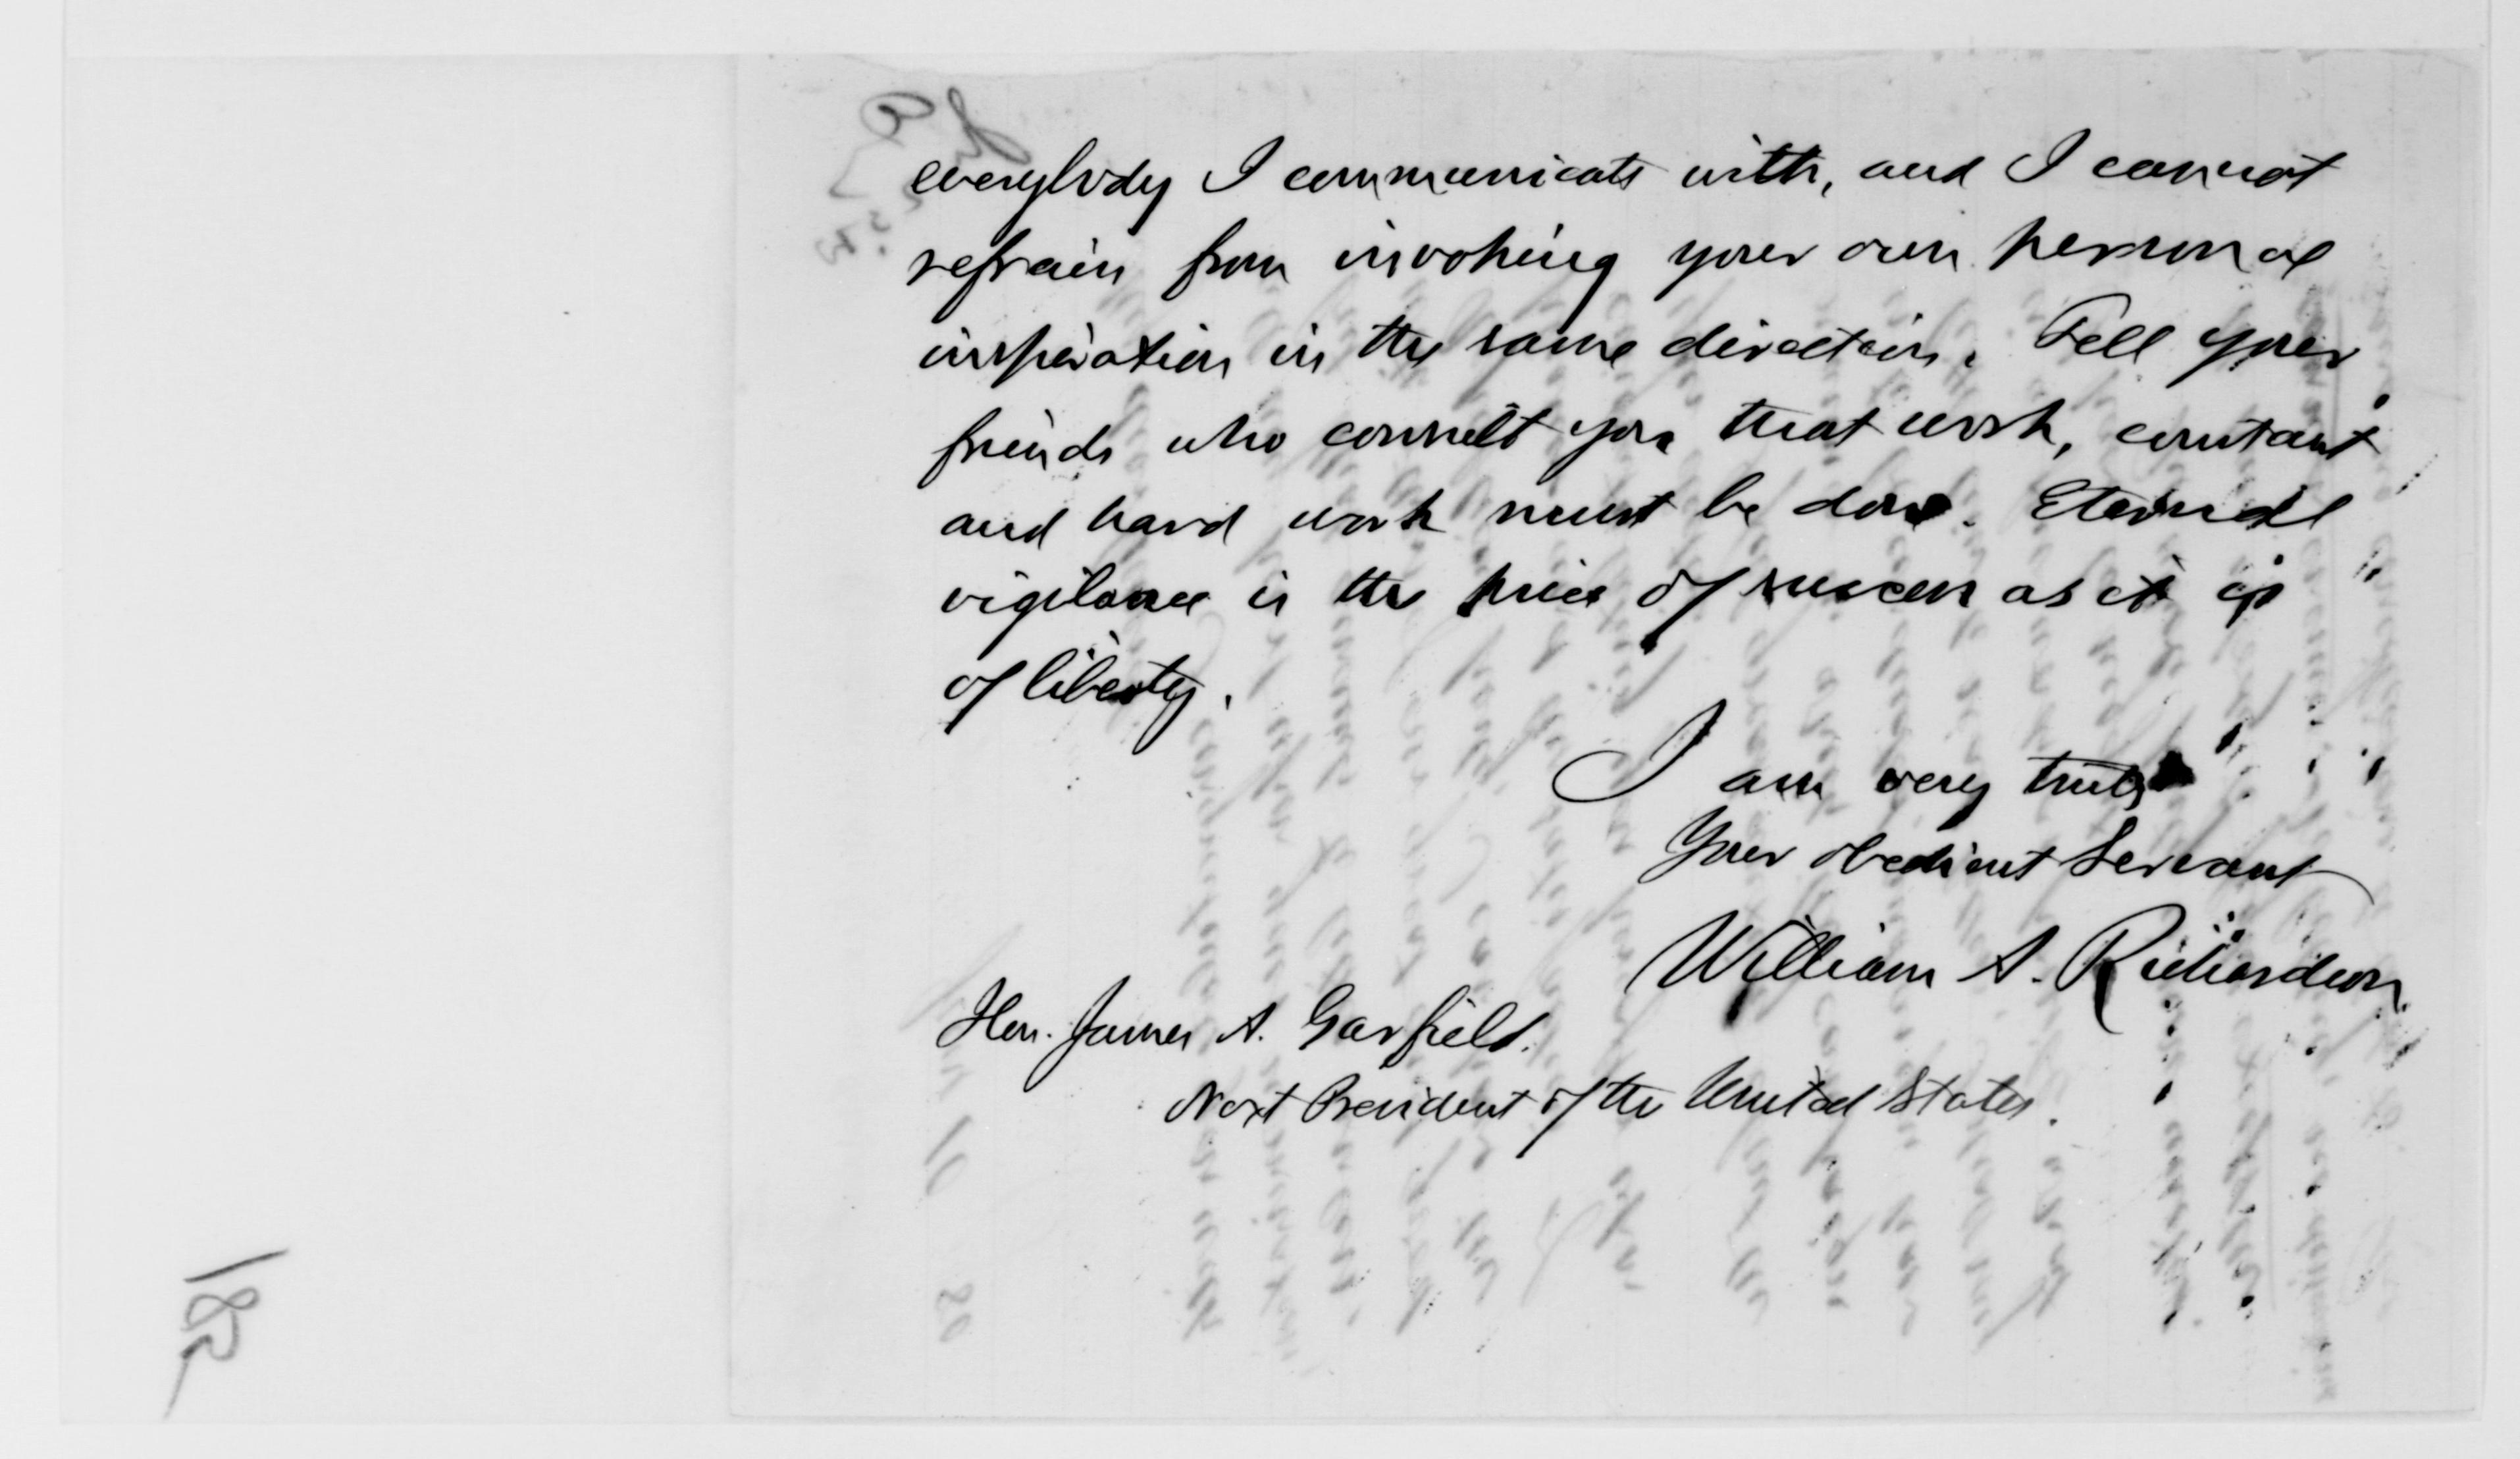 everybody I communicate with, and I cannot
refrain from invoking your own personal
inspiration in the same direction. Tell your
friends who consult you that work, constant
and hard work must be done. Eternal
vigilance is the price of success as it is
of liberty.
I am very truly
Your obedient Servant
William A. Richardson
Hon. James A. Garfield.
Next President of the United States.